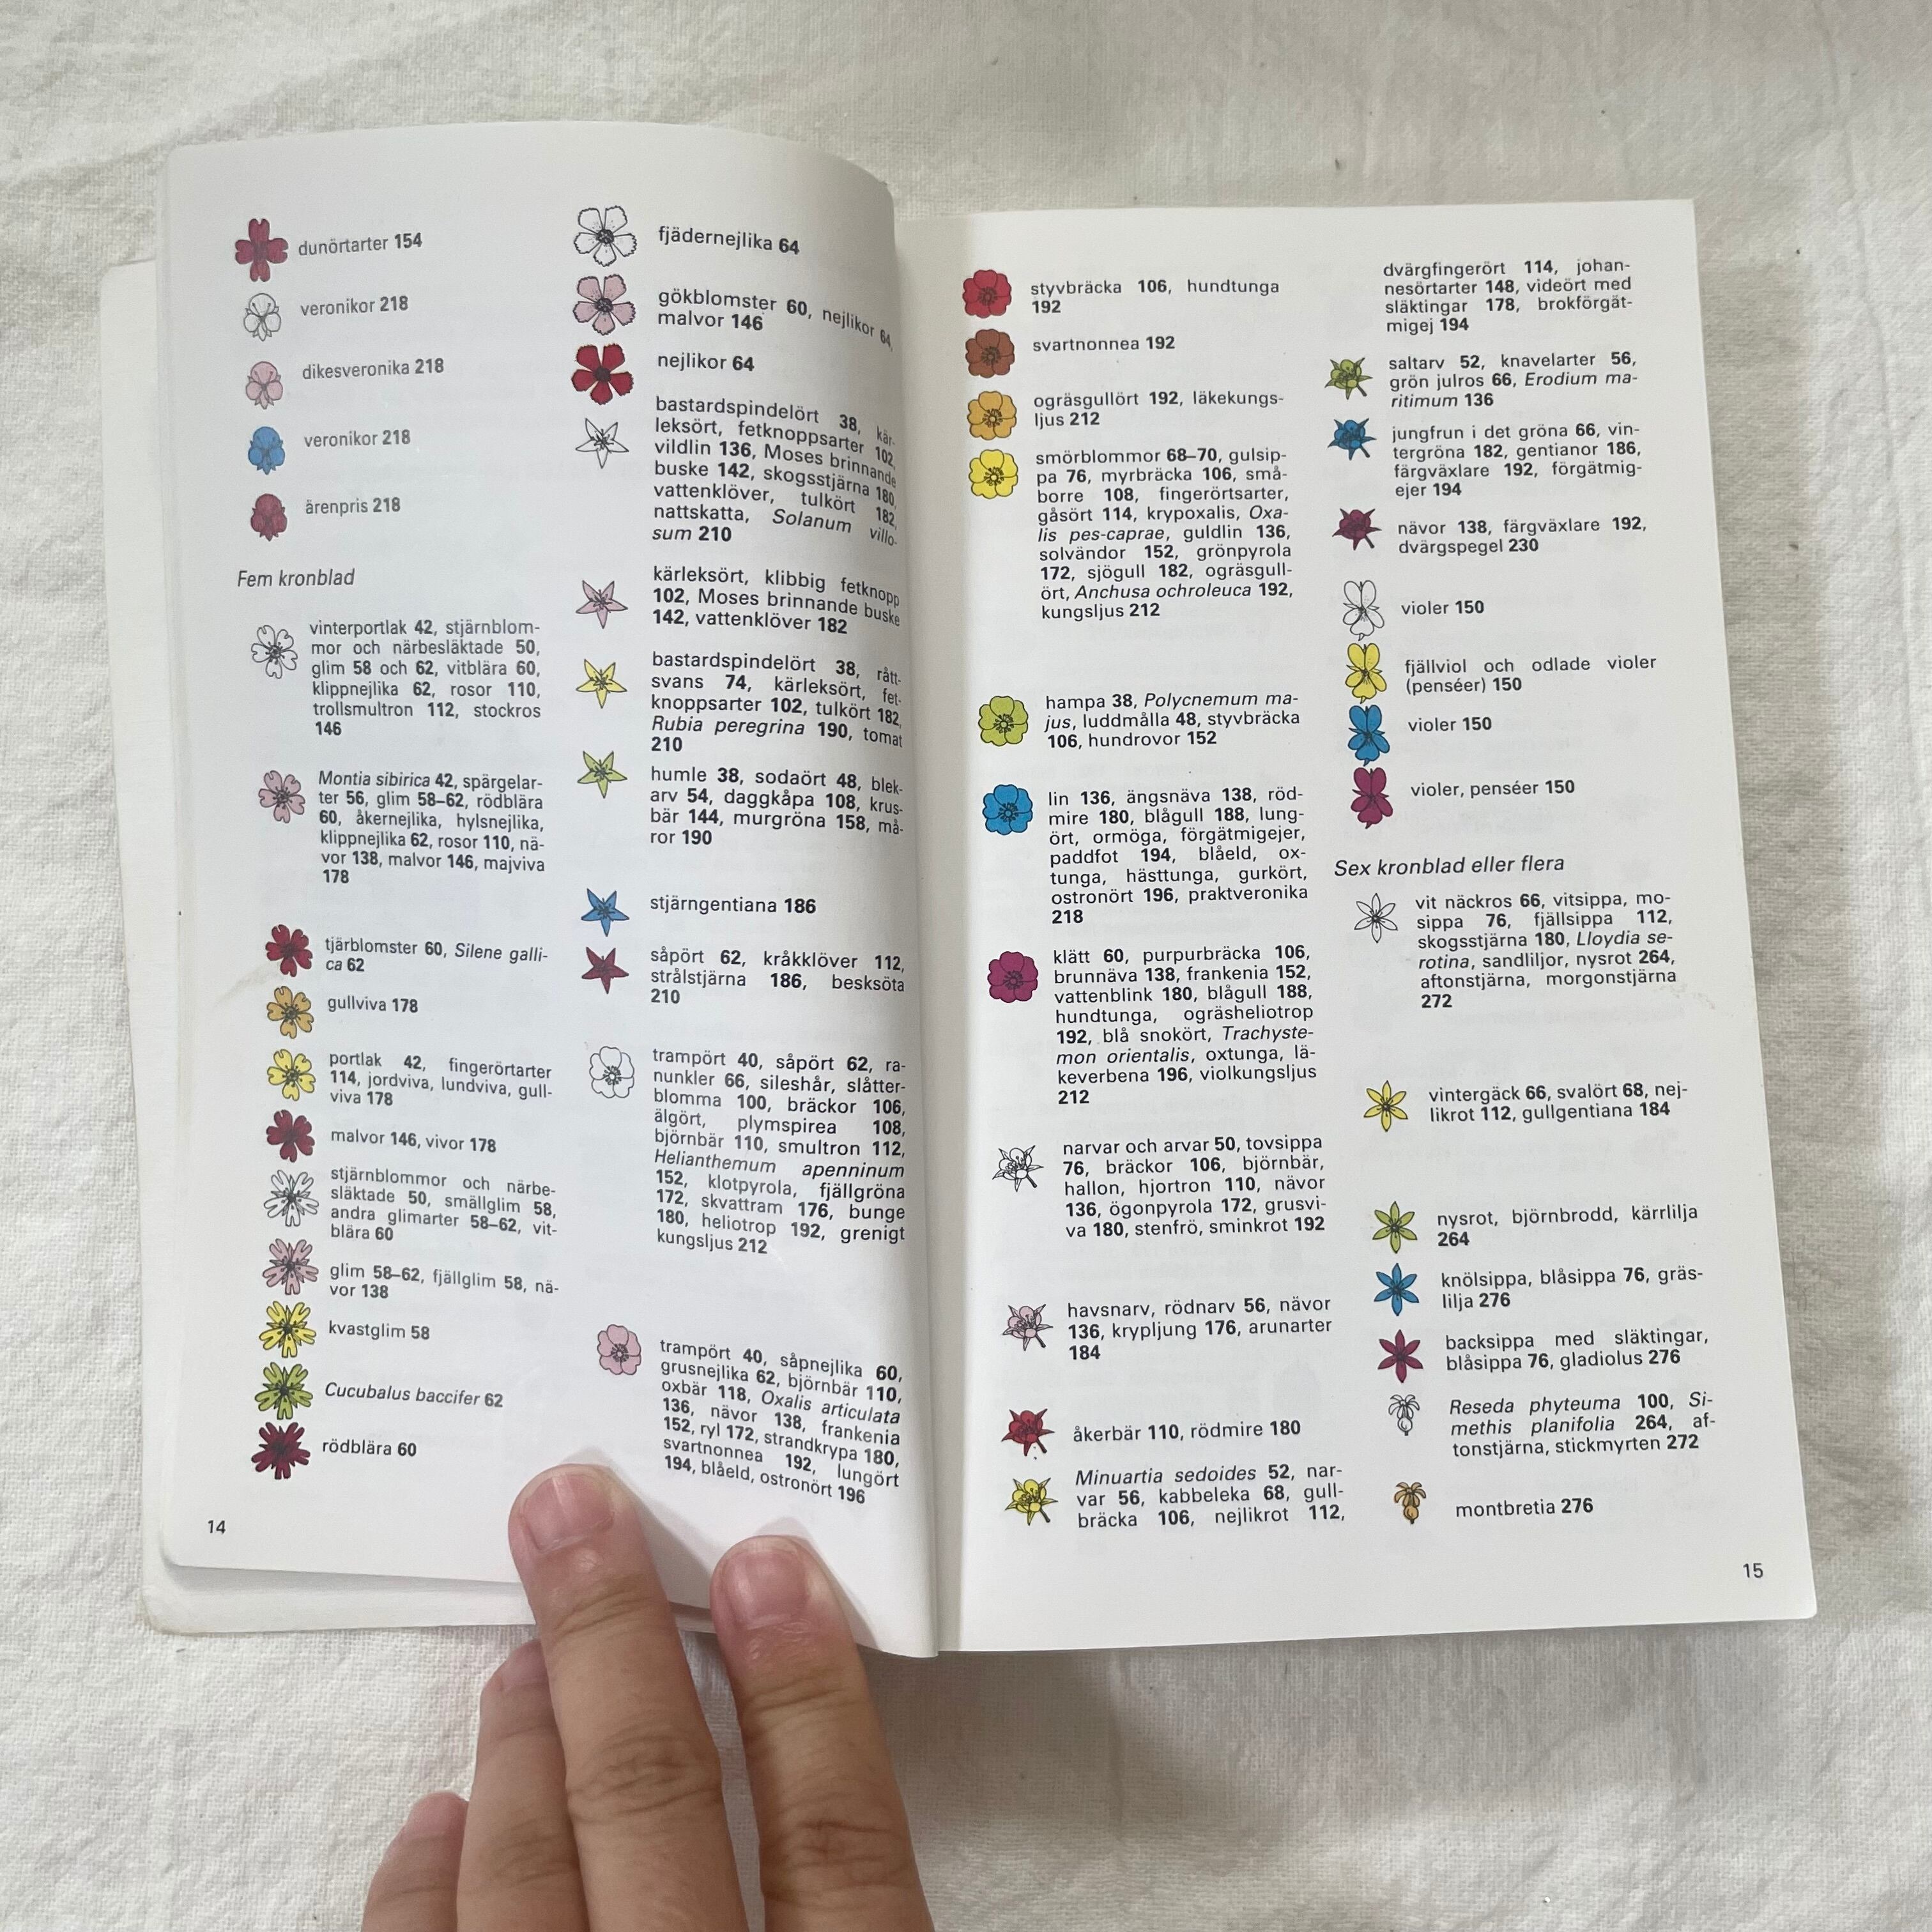 dunörtarter 154
veronikor 218
dikesveronika 218
veronikor 218
ärenpris 218
Fem kronblad
vinterportlak 42, stjärnblom-
mor och närbesläktade 50,
glim 58 och 62, vitblära 60,
klippnejlika 62, rosor 110,
trollsmultron 112, stockros
146
Montia sibirica 42, spärgelar-
ter 56, glim 58–62, rödblära
60, åkernejlika, hylsnejlika,
klippnejlika 62, rosor 110, nä-
vor 138, malvor 146, majviva
178
tjärblomster 60, Silene galli-
ca 62
gullviva 178
portlak 42, fingerörtarter
114, jordviva, lundviva, gull-
viva 178
malvor 146, vivor 178
stjärnblommor och närbe-
släktade 50, smällglim 58,
andra glimarter 58–62, vit-
blära 60
glim 58–62, fjällglim 58, nä-
vor 138
kvastglim 58
Cucubalus baccifer 62
rödblära 60
14
fjädernejlika 64
gökblomster 60, nejlikor 64,
malvor 146
nejlikor 64
bastardspindelört 38, kär-
leksört, fetknoppsarter 102,
vildlin 136, Moses brinnande
buske 142, skogsstjärna 180,
vattenklöver, tulkört 182,
nattskatta, Solanum villo-
sum 210
kärleksört, klibbig fetknopp
102, Moses brinnande buske
142, vattenklöver 182
bastardspindelört 38, rått-
svans 74, kärleksört, fet-
knoppsarter 102, tulkört 182,
Rubia peregrina 190, tomat
210
humle 38, sodaört 48, blek-
arv 54, daggkåpa 108, krus-
bär 144, murgröna 158, må-
ror 190
stjärngentiana 186
såpört 62, kråkklöver 112,
strålstjärna 186, besksöta
210
trampört 40, såpört 62, ra-
nunkler 66, sileshår, slåtter-
blomma 100, bräckor 106,
älgört, plymspirea 108,
björnbär 110, smultron 112,
Helianthemum apenninum
152, klotpyrola, fjällgröna
172, skvattram 176, bunge
180, heliotrop 192, grenigt
kungsljus 212
trampört 40, såpnejlika 60,
grusnejlika 62, björnbär 110,
oxbär 118, Oxalis articulata
136, nävor 138, frankenia
152, ryl 172, strandkrypa 180,
svartnonnea 192, lungört
194, blåeld, ostronört 196
styvbräcka 106, hundtunga
192
svartnonnea 192
ogräsgullört 192, läkekungs-
ljus 212
smörblommor 68–70, gulsip-
pa 76, myrbräcka 106, små-
borre 108, fingerörtsarter,
gåsört 114, krypoxalis, Oxa-
lis pes-caprae, guldlin 136,
solvändor 152, grönpyrola
172, sjögull 182, ogräsgull-
ört, Anchusa ochroleuca 192,
kungsljus 212
hampa 38, Polycnemum ma-
jus, luddmålla 48, styvbräcka
106, hundrovor 152
lin 136, ängsnäva 138, röd-
mire 180, blågull 188, lung-
ört, ormöga, förgätmigejer,
paddfot 194, blåeld, ox-
tunga, hästtunga, gurkört,
ostronört 196, praktveronika
218
klätt 60, purpurbräcka 106,
brunnäva 138, frankenia 152,
vattenblink 180, blågull 188,
hundtunga, ogräsheliotrop
192, blå snokört, Trachyste-
mon orientalis, oxtunga, lä-
keverbena 196, violkungsljus
212
narvar och arvar 50, tovsippa
76, bräckor 106, björnbär,
hallon, hjortron 110, nävor
136, ögonpyrola 172, grusvi-
va 180, stenfrö, sminkrot 192
havsnarv, rödnarv 56, nävor
136, krypljung 176, arunarter
184
åkerbär 110, rödmire 180
Minuartia sedoides 52, nar-
var 56, kabbeleka 68, gull-
bräcka 106, nejlikrot 112,
dvärgfingerört 114, johan-
nesörtarter 148, videört med
släktingar 178, brokförgät-
migej 194
saltarv 52, knavelarter 56,
grön julros 66, Erodium ma-
ritimum 136
jungfrun i det gröna 66, vin-
tergröna 182, gentianor 186,
färgväxlare 192, förgätmig-
ejer 194
nävor 138, färgväxlare 192,
dvärgspegel 230
violer 150
fjällviol och odlade violer
(penséer) 150
violer 150
violer, penséer 150
Sex kronblad eller flera
vit näckros 66, vitsippa, mo-
sippa 76, fjällsippa 112,
skogsstjärna 180, Lloydia se-
rotina, sandliljor, nysrot 264,
aftonstjärna, morgonstjärna
272
vintergäck 66, svalört 68, nej-
likrot 112, gullgentiana 184
nysrot, björnbrodd, kärrlilja
264
knölsippa, blåsippa 76, gräs-
lilja 276
backsippa med släktingar,
blåsippa 76, gladiolus 276
Reseda phyteuma 100, Si-
methis planifolia 264, af-
tonstjärna, stickmyrten 272
montbretia 276
15